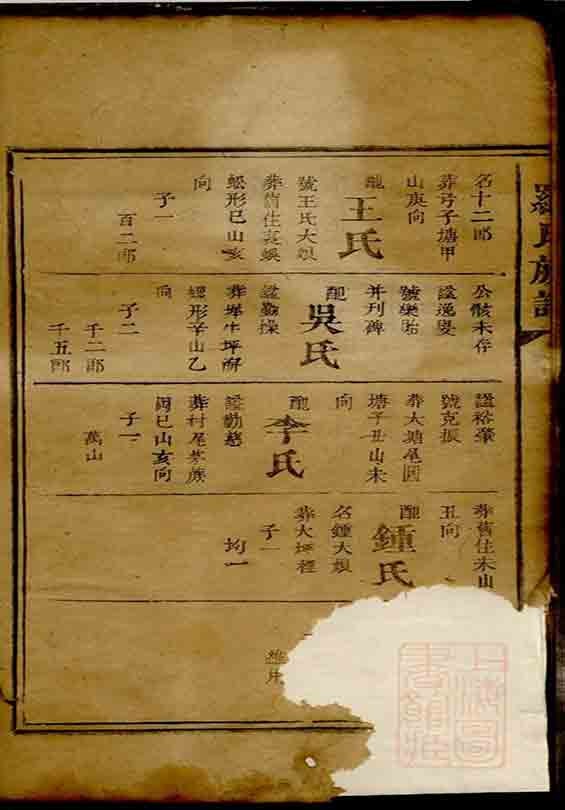 羅氏族譜
名十二郎
葬弓子塘甲
山庚向
配
王氏
號王氏大娘
葬舊住
蚣形巳山亥
向
子一
百二郎
公骸未存
謚逸叟
號樂
并刊碑
配
吳氏
謚勤操
葬
螺形辛山乙
向
子二
千二郎
千五郎
謚裕肇
號克振
葬大塘尾圓
塘子丑山未
向
配
李氏
謚勤慈
葬村尾
巳山亥向
子一
萬山
葬舊住未山
丑向
配
鍾氏
名鍾大娘
葬大坪裡
子一
均一
上海圖
書館藏